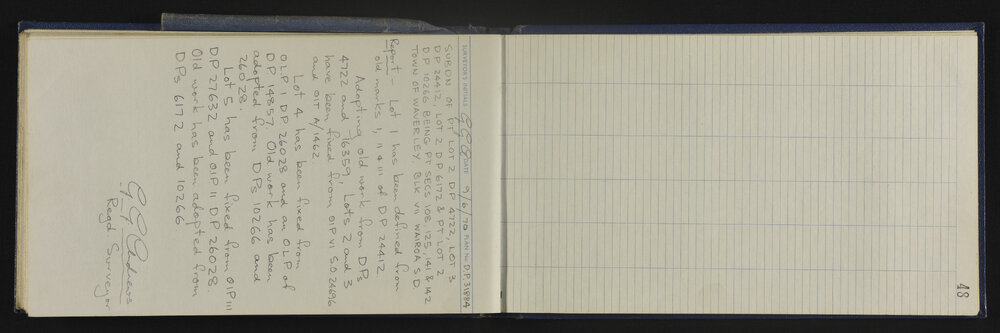 SURVEYORS INITIALS G G A DATE 9/6/70 PLAN No. D.P. 31884
SUBDN OF PT LOT 2 D.P. 4722, LOT 3
D.P. 24412, LOT 2 D.P. 6172 & PT LOT 2
D.P. 10266 BEING PT SECS 108, 125, 141 & 142
TOWN OF WAVERLEY BLK VII WAIROA S.D.
Report - Lot 1 has been defined from
old marks 1, 11 & 111 of D.P. 24412
Adopting old work from DPs
4722 and 16359, Lots 2 and 3
have been fixed from OIP VI S.O. 24696
and OIT A/1462
Lot 4 has been fixed from
OLP 1 DP 26028 and an OLP of
DP 14857. Old work has been
adopted from DPs 10266 and
26028.
Lot 5 has been fixed from OIP III
DP 27632 and OIP II DP 26028.
Old work has been adopted from
DPs 6172 and 10266
G G Andrews
Regd Surveyor
48